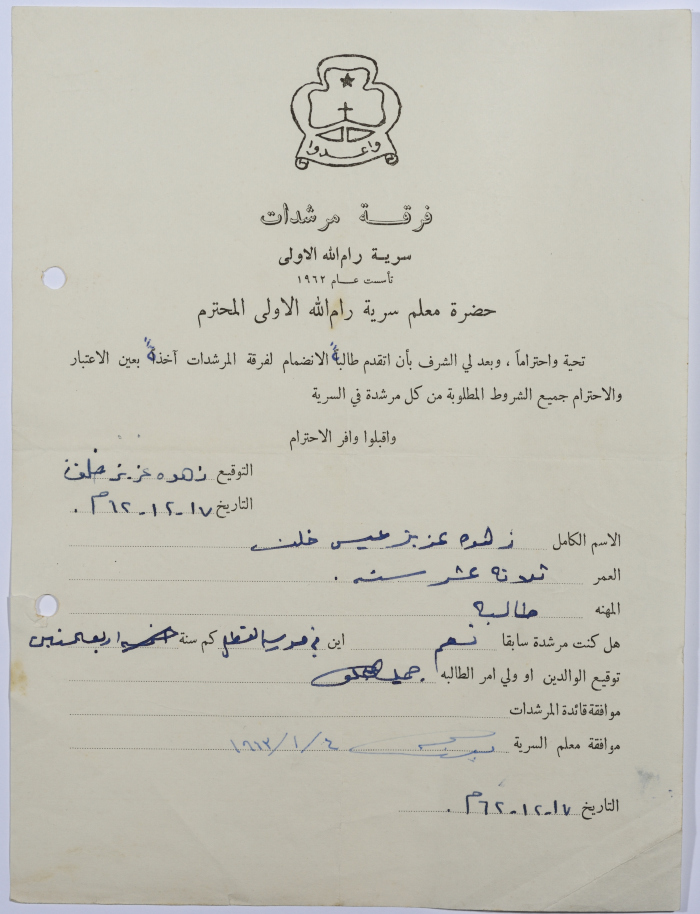 واعدوا
فرقة مرشدات
سرية رام الله الاولى
تأسست عام ١٩٦٢
حضرة معلم سرية رام الله الاولى المحترم
تحية واحتراماً ، وبعد لي الشرف بأن اتقدم طالبةً الانضمام لفرقة المرشدات آخذةً بعين الاعتبار
والاحترام جميع الشروط المطلوبة من كل مرشدة في السرية
واقبلوا وافر الاحترام
التوقيع زهوه عزيز خلف
التاريخ ١٧-١٢-٦٢م.
الاسم الكامل زهوه عزيز عيسى خلف
العمر ثلاثة عشر سنه .
المهنه طالبه
هل كنت مرشدة سابقا نعم اين في مدرسه كم سنة اربعه سنين
توقيع الوالدين او ولي امر الطالبه
موافقة قائدة المرشدات
موافقة معلم السرية ١٩٦٣/١/٤
التاريخ ١٧-١٢-٦٢م.